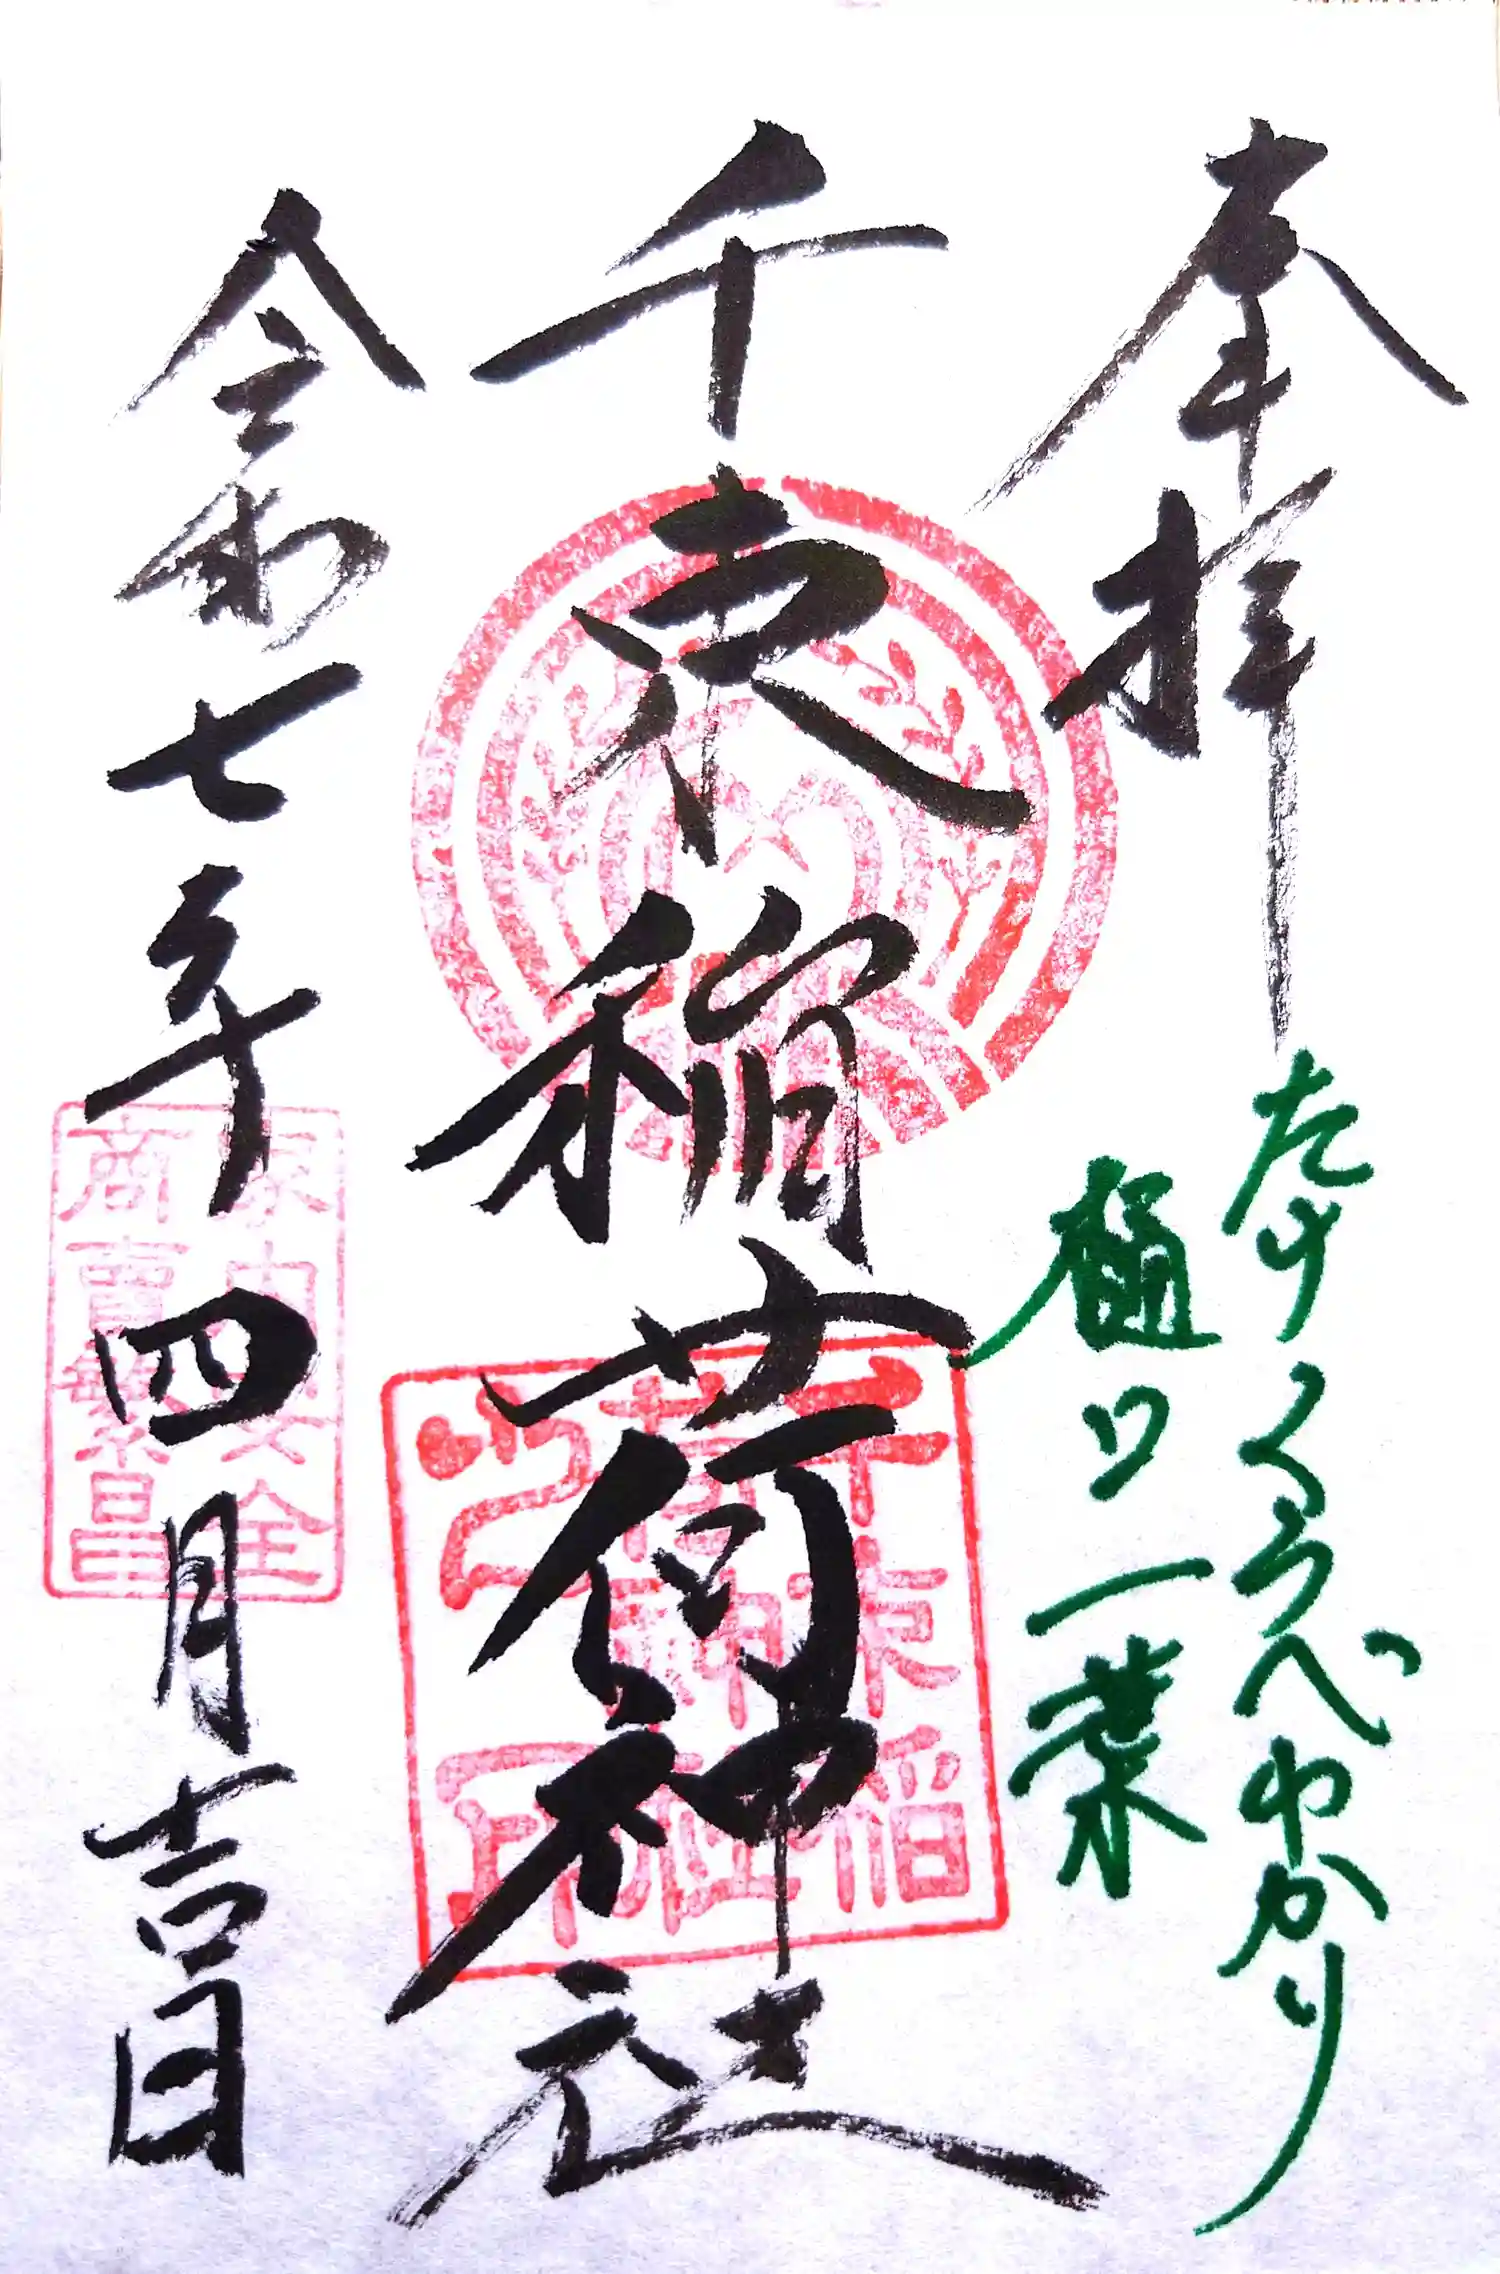 奉拝
たけくらべゆかり
樋口一葉
千束稲荷神社
千束稲
荷神社
令和七年四月吉日
家内安全
商売繁昌